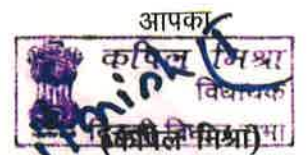 आपका
कपिल मिश्रा
विधायक
(कपिल मिश्रा)